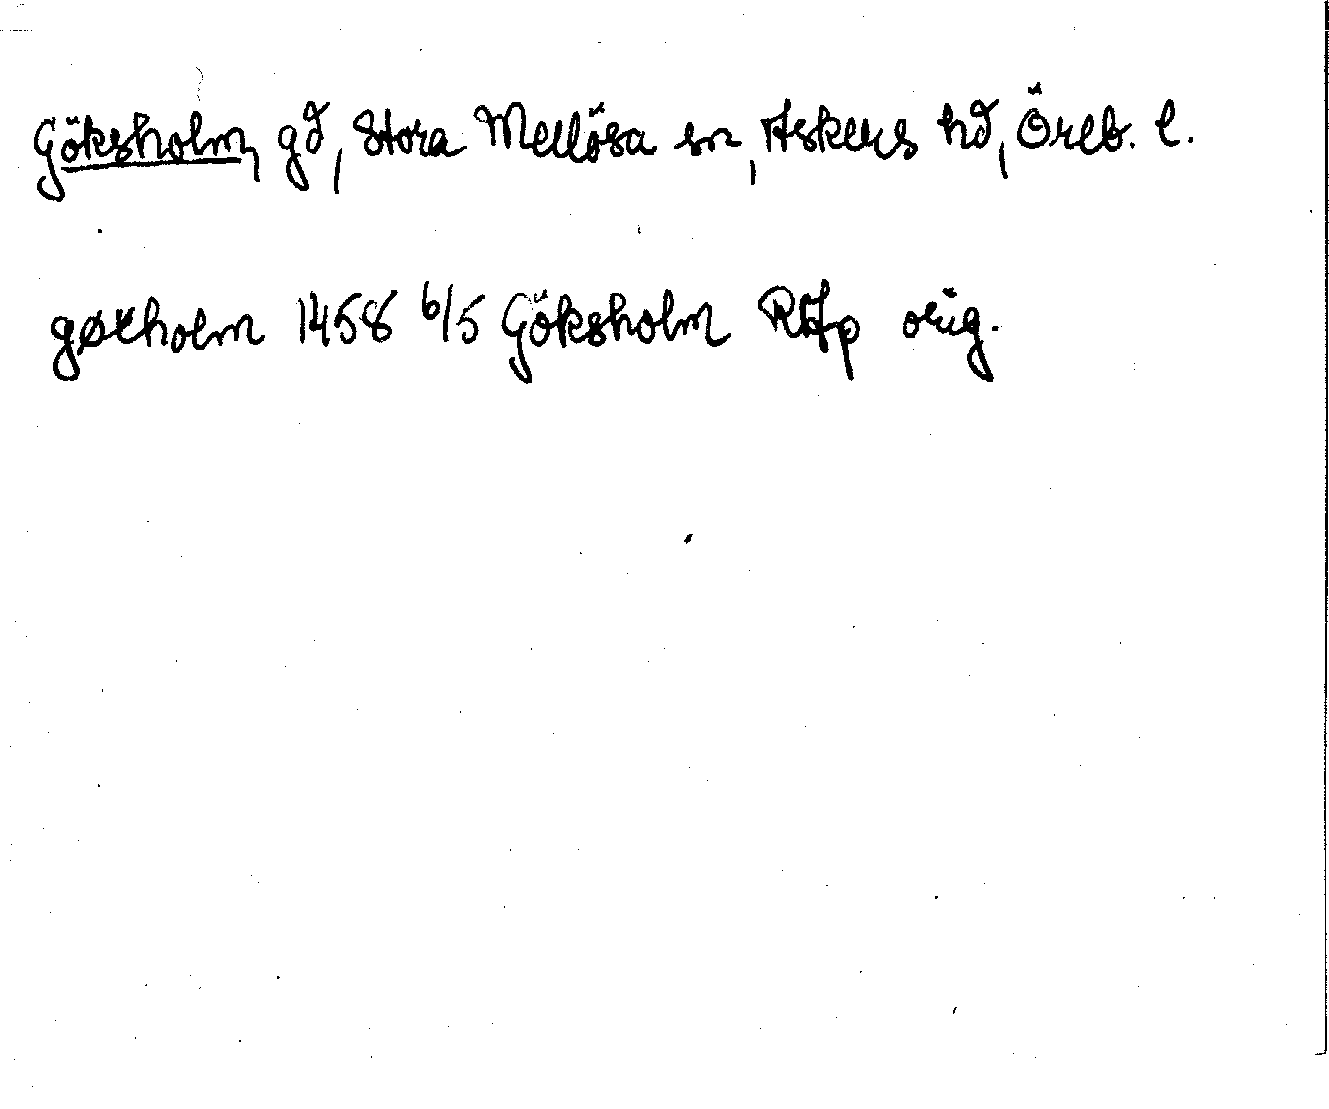 Göksholm, gd, Stora Mellösa sn, Askers hd, Öreb. l.
gøxholm 1458 6/5 Göksholm RAp orig.